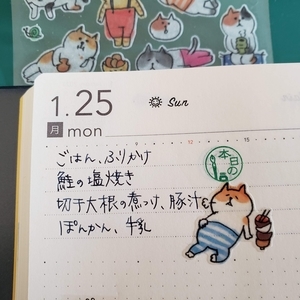 1.25
Sun
月 mon
本日の
ごはん、ふりかけ
鮭の塩焼き
切干大根の煮つけ、豚汁
ぽんかん、牛乳